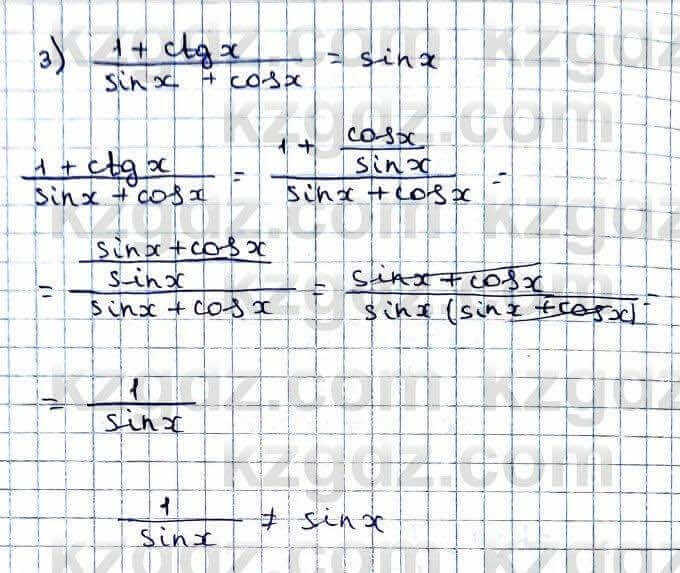 3) (1 + ctg x)/(sin x + cos x) = sin x
(1 + ctg x)/(sin x + cos x) = (1 + cos x/sin x)/(sin x + cos x) =
= ((sin x + cos x)/sin x)/(sin x + cos x) = (sin x + cos x)/(sin x (sin x + cos x)) =
= 1/sin x
1/sin x ≠ sin x
kzgdz.com